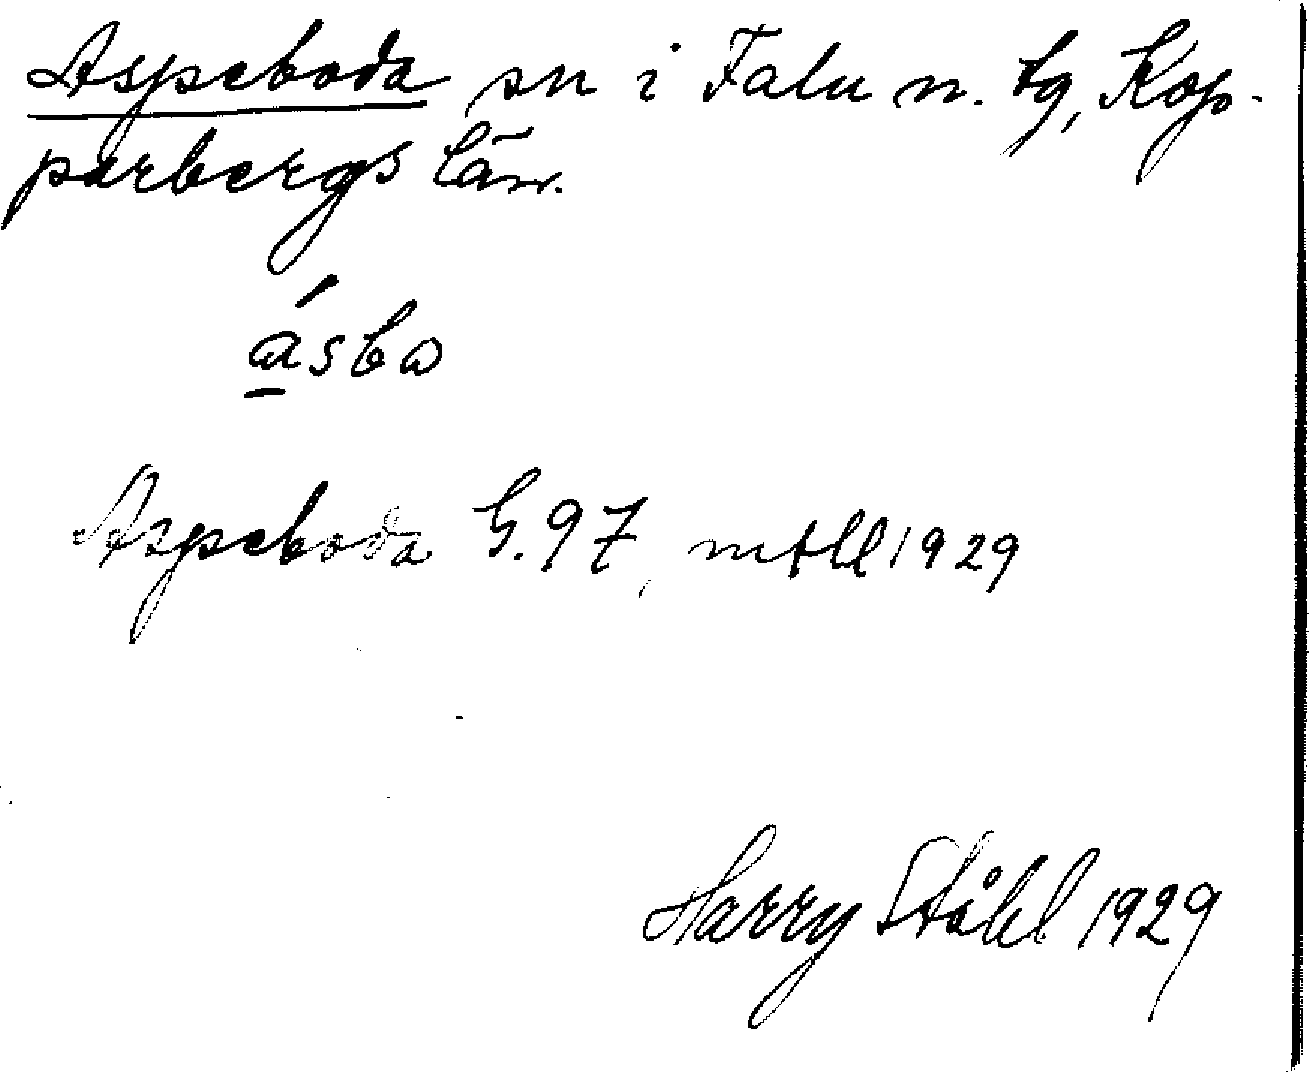 Aspeboda sn i Falu n. tg, Kop-
parbergs län.
ásbω
Aspeboda G. 97, mtll 1929
Harry Ståhl 1929